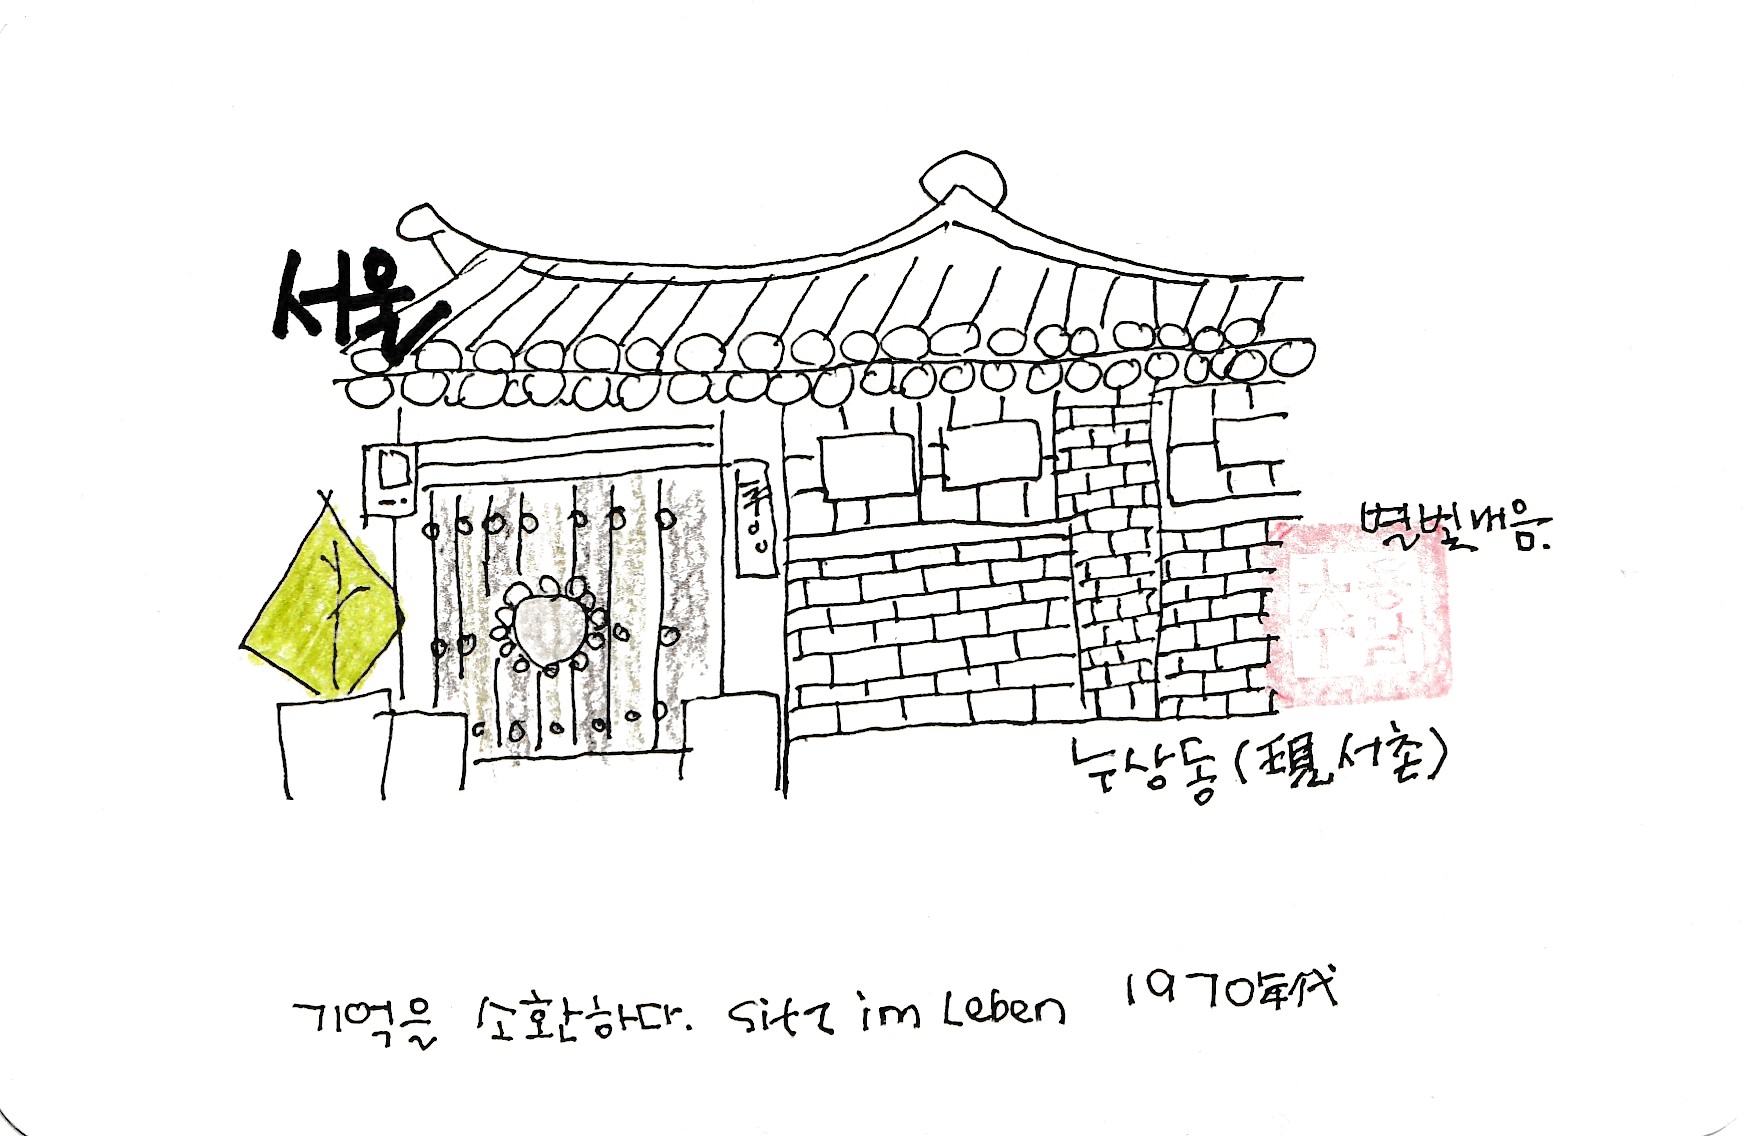 서울
별별내음.
누상동(現서촌)
기억을 소환하다. Sitz im Leben 1970年代